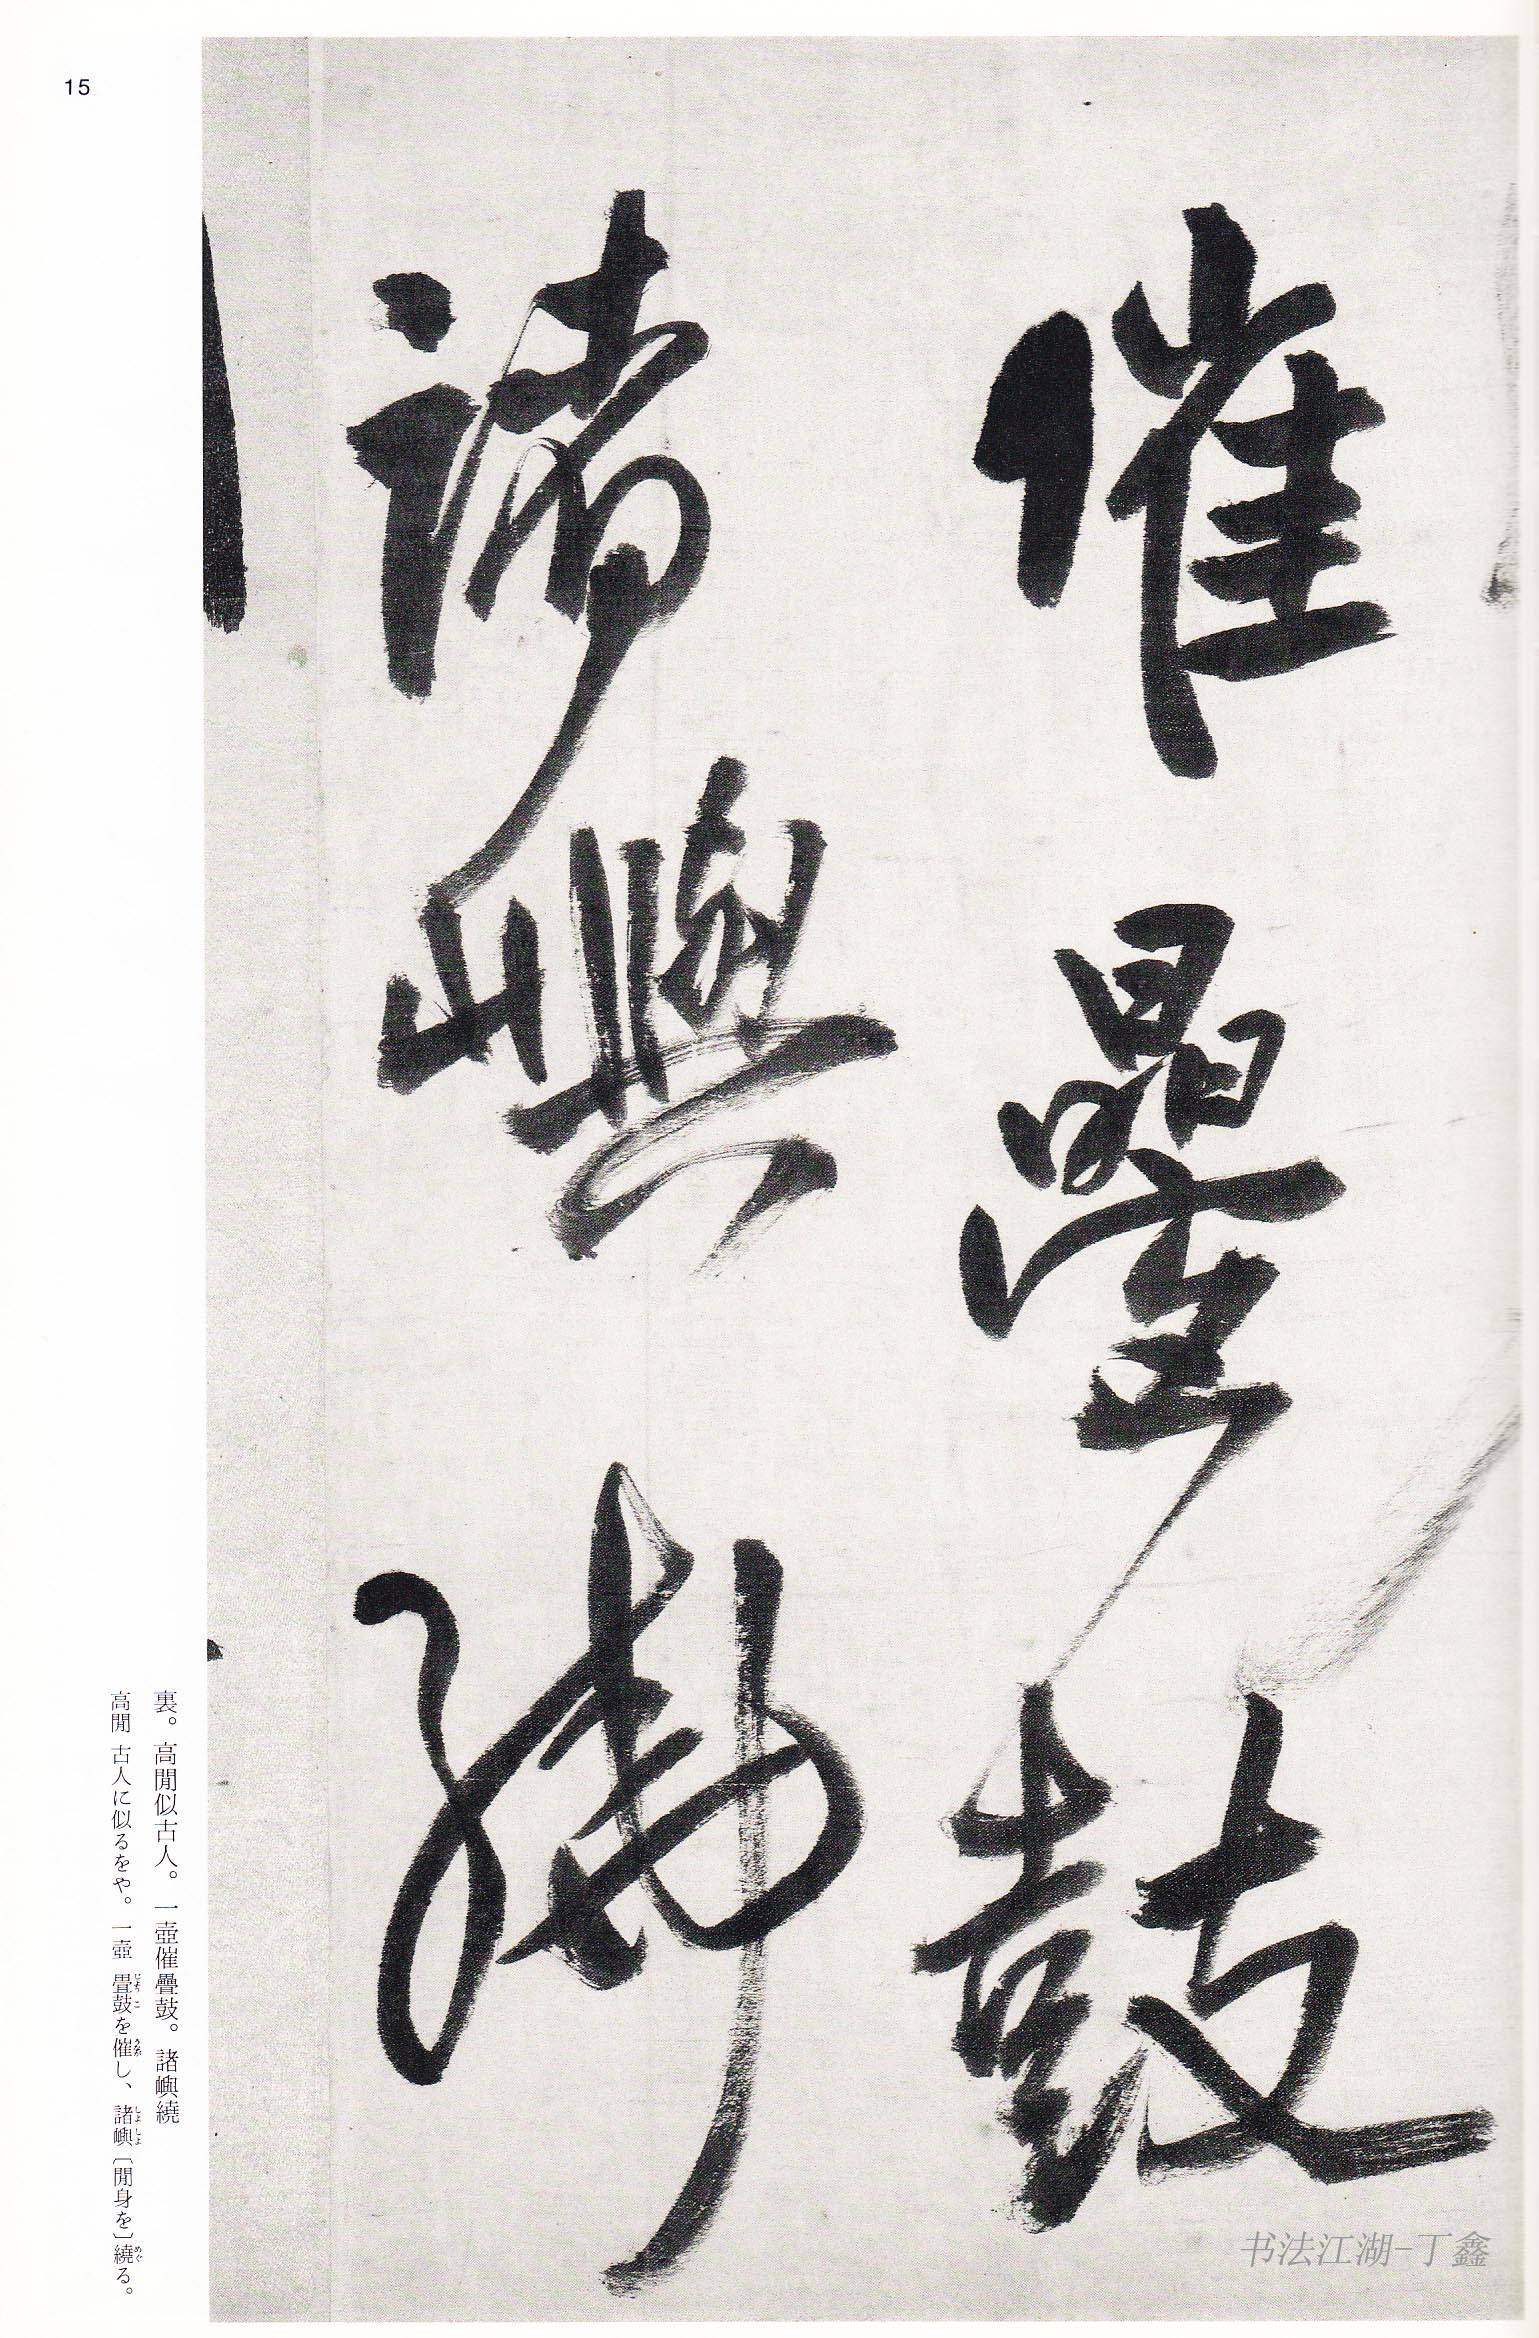 15
催疊鼓
諸嶼繞
裏。高閒似古人。一壺催疊鼓。諸嶼繞
高閒 古人に似るをや。一壺 畳鼓を催し、諸嶼〔閒身を〕繞る。
书法江湖-丁鑫